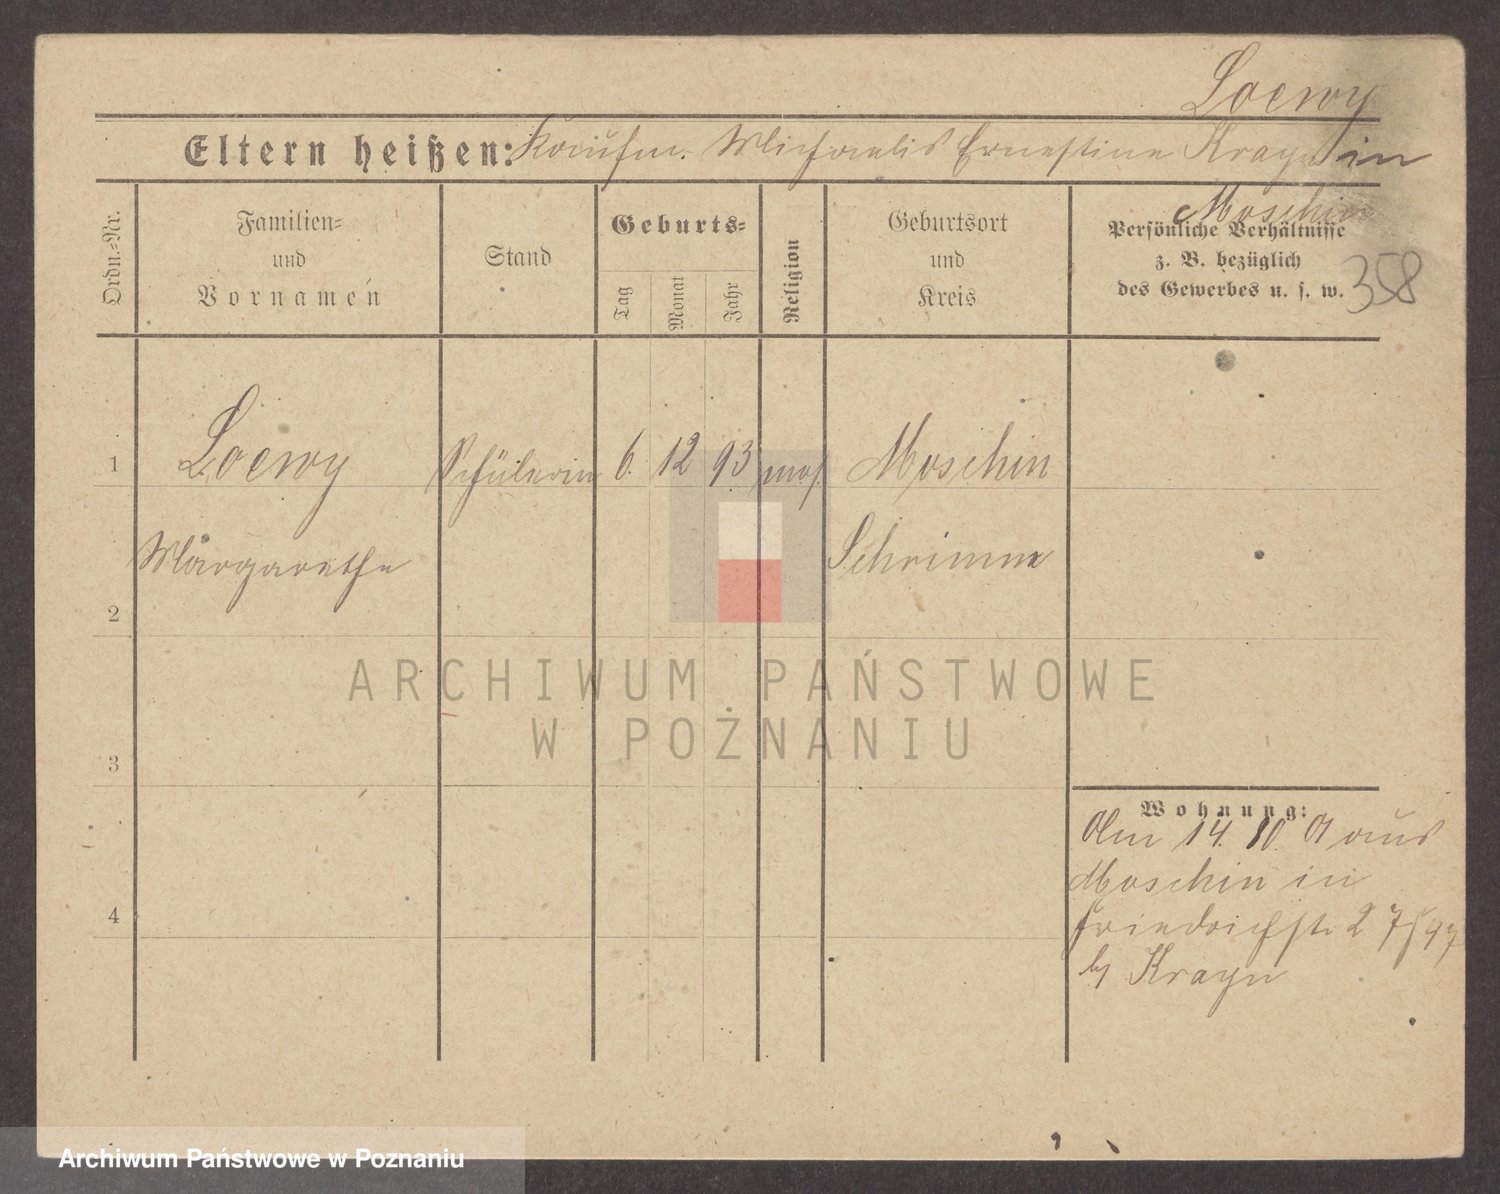 Loewy
Eltern heißen: Kaufm. Michaelis Ernestine Krayn in
Moschin
Ordn.=Nr.
Familien=
und
Vornamen
Stand
Geburts=
Tag
Monat
Jahr
Religion
Geburtsort
und
Kreis
Persönliche Verhältnisse
z. B. bezüglich
des Gewerbes u. s. w.
358
1 Loewy Schülerin 6. 12 93 mos. Moschin
Margarethe Schrimm
2
3
4
Wohnung:
Am 14. 10. 01 aus
Moschin in
Friedrichstr. 27
b/ Krayn
ARCHIWUM PAŃSTWOWE
W POZNANIU
Archiwum Państwowe w Poznaniu